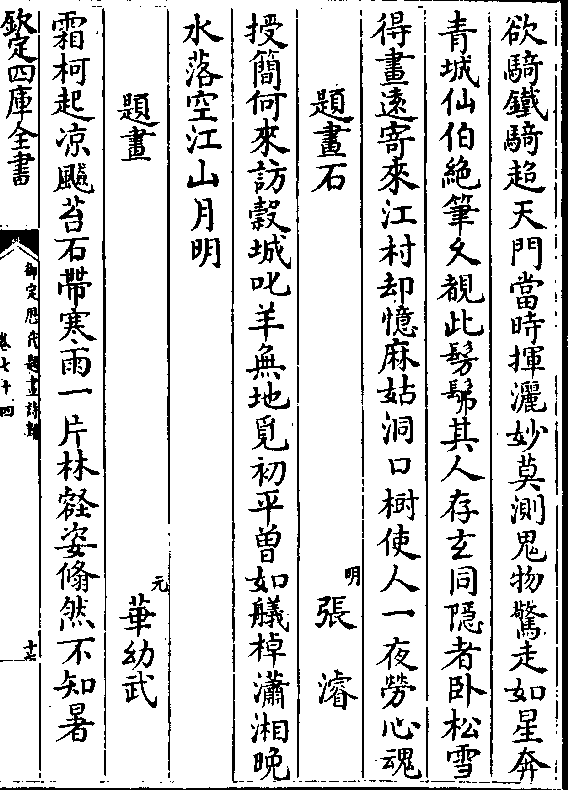 欲騎鐵騎超天門當時揮灑妙莫測鬼物驚走如星奔
青城仙伯絶筆久覩此髣髴其人存玄同隠者卧松雪
得畫遠寄來江村却憶麻姑洞口樹使人一夜勞心魂
題畫石 明 張濬
授簡何來訪穀城叱羊無地覓初平曽如艤棹瀟湘晩
水落空江山月明
題畫 元 華幼武
霜柯起凉飈苔石帶寒雨一片林壑姿翛然不知暑
欽定四庫全書
御定歴代題畫詩類
卷七十四